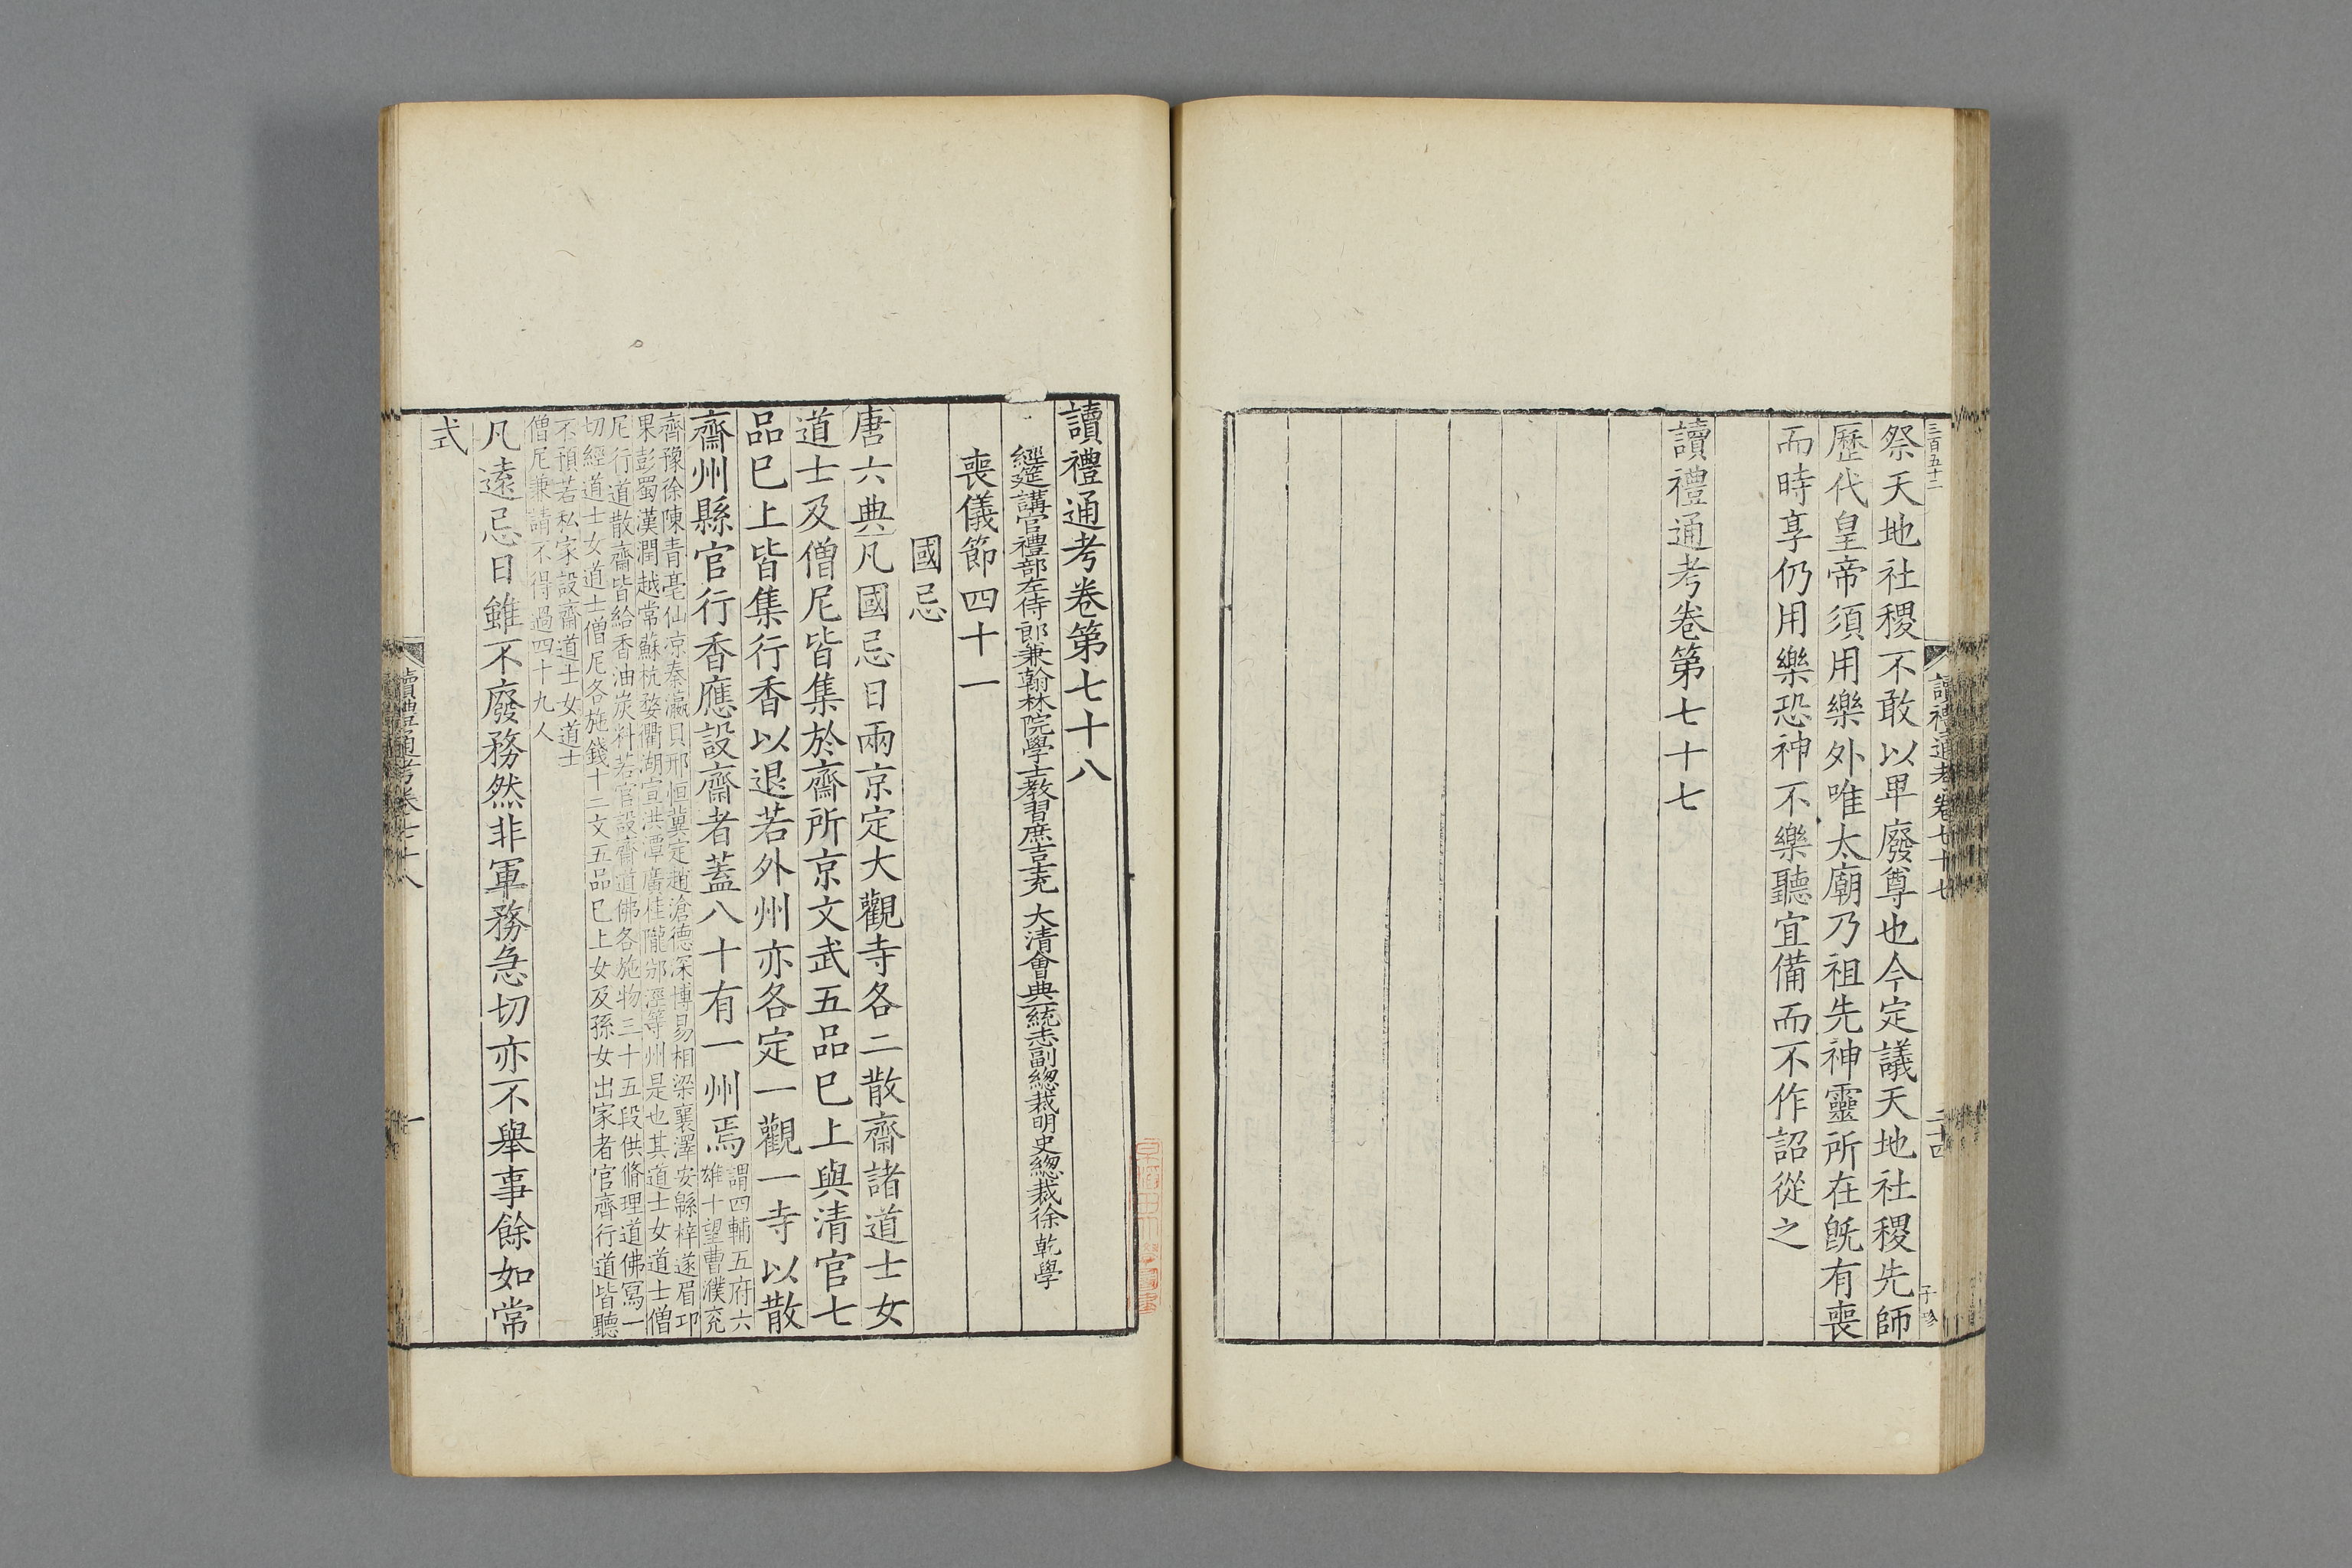 三百五十二
祭天地社稷不敢以卑廢尊也今定議天地社稷先師
歷代皇帝須用樂外唯太廟乃祖先神靈所在旣有喪
而時享仍用樂恐神不樂聽宜備而不作詔從之
讀禮通考卷第七十七
讀禮通考卷七十七
二十四
讀禮通考卷第七十八
經筵講官禮部左侍郎兼翰林院學士教習庶吉士充 大清會典一統志副總裁明史總裁徐乾學
喪儀節四十一
國忌
唐六典凡國忌日兩京定大觀寺各二散齋諸道士女
道士及僧尼皆集於齋所京文武五品已上與清官七
品已上皆集行香以退若外州亦各定一觀一寺以散
齋州縣官行香應設齋者蓋八十有一州焉
謂四輔五府六
雄十望曹濮兗
齊豫徐陳青亳仙涼秦瀛貝邢恒冀定趙滄德深博易相梁襄澤安緜梓遂眉邛
果彭蜀漢潤越常蘇杭婺衢湖宣洪潭廣桂隴邠涇等州是也其道士女道士僧
尼行道散齋皆給香油炭料若官設齋道佛各施物三十五段供脩理道佛寫一
切經道士女道士僧尼各施錢十二文五品已上女及孫女出家者官齊行道皆聽
不預若私家設齋道士女道士
僧尼兼請不得過四十九人
凡遠忌日雖不廢務然非軍務急切亦不舉事餘如常
式
讀禮通考卷七十八
一